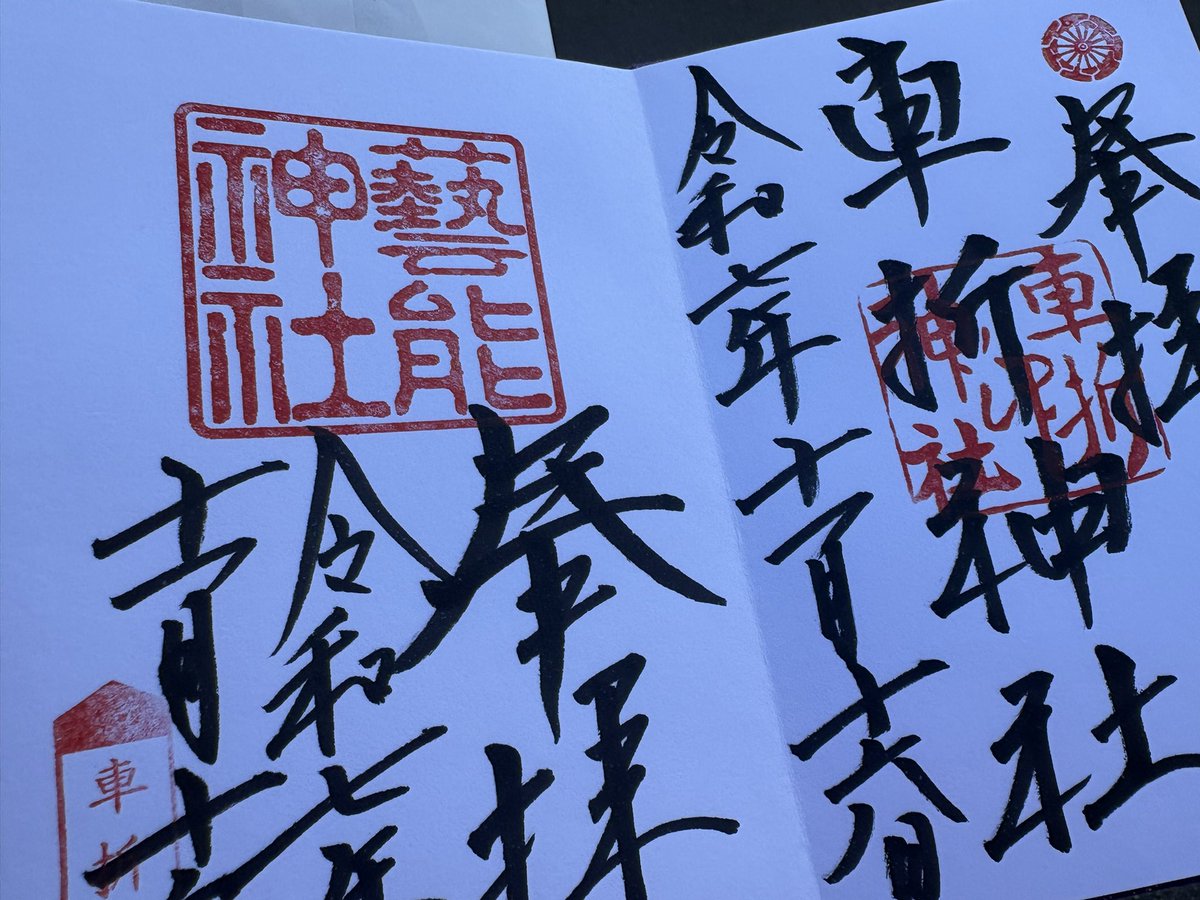 奉拝
車折神社
車折神社
令和七年十一月十六日
藝能
神社
奉拝
令和七年
十一月十
車折